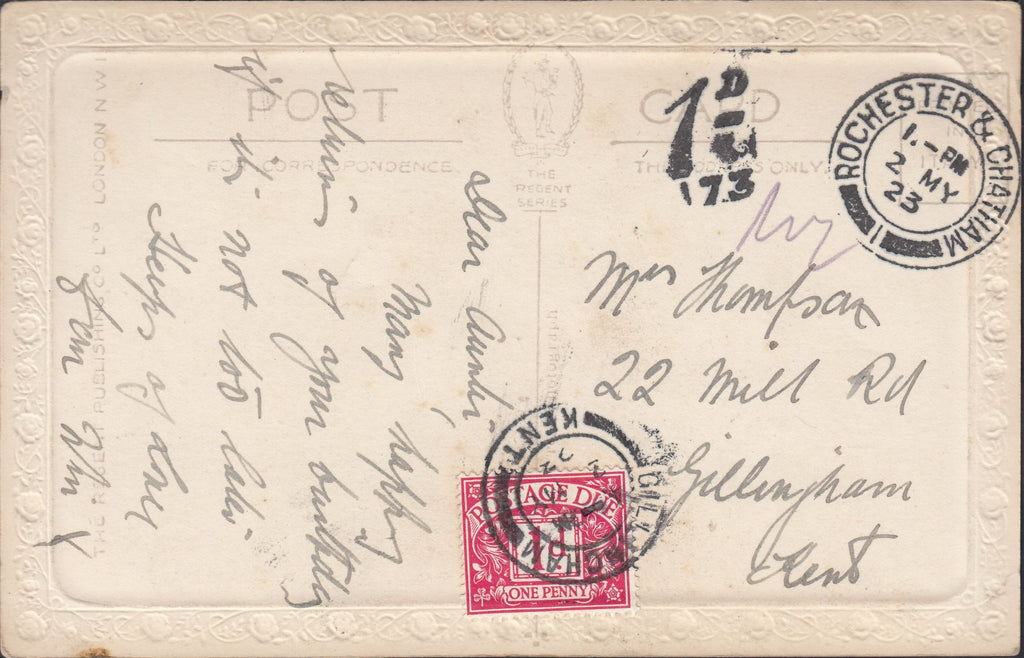 POST CARD
FOR CORRESPONDENCE.
THE ADDRESS ONLY.
THE
REGENT
SERIES
THE REGENT PUBLISHING CO LTD LONDON NW1
1D
73
ROCHESTER & CHATHAM
1.-PM
2 MY
23
1
Dear Aunti,
Many happy
returns of your birthday
if it's not too late
Heaps of love
from
Mrs Thompson
22 Mill Rd
Gillingham
Kent
GILLINGHAM
KENT
POSTAGE DUE
1D
ONE PENNY